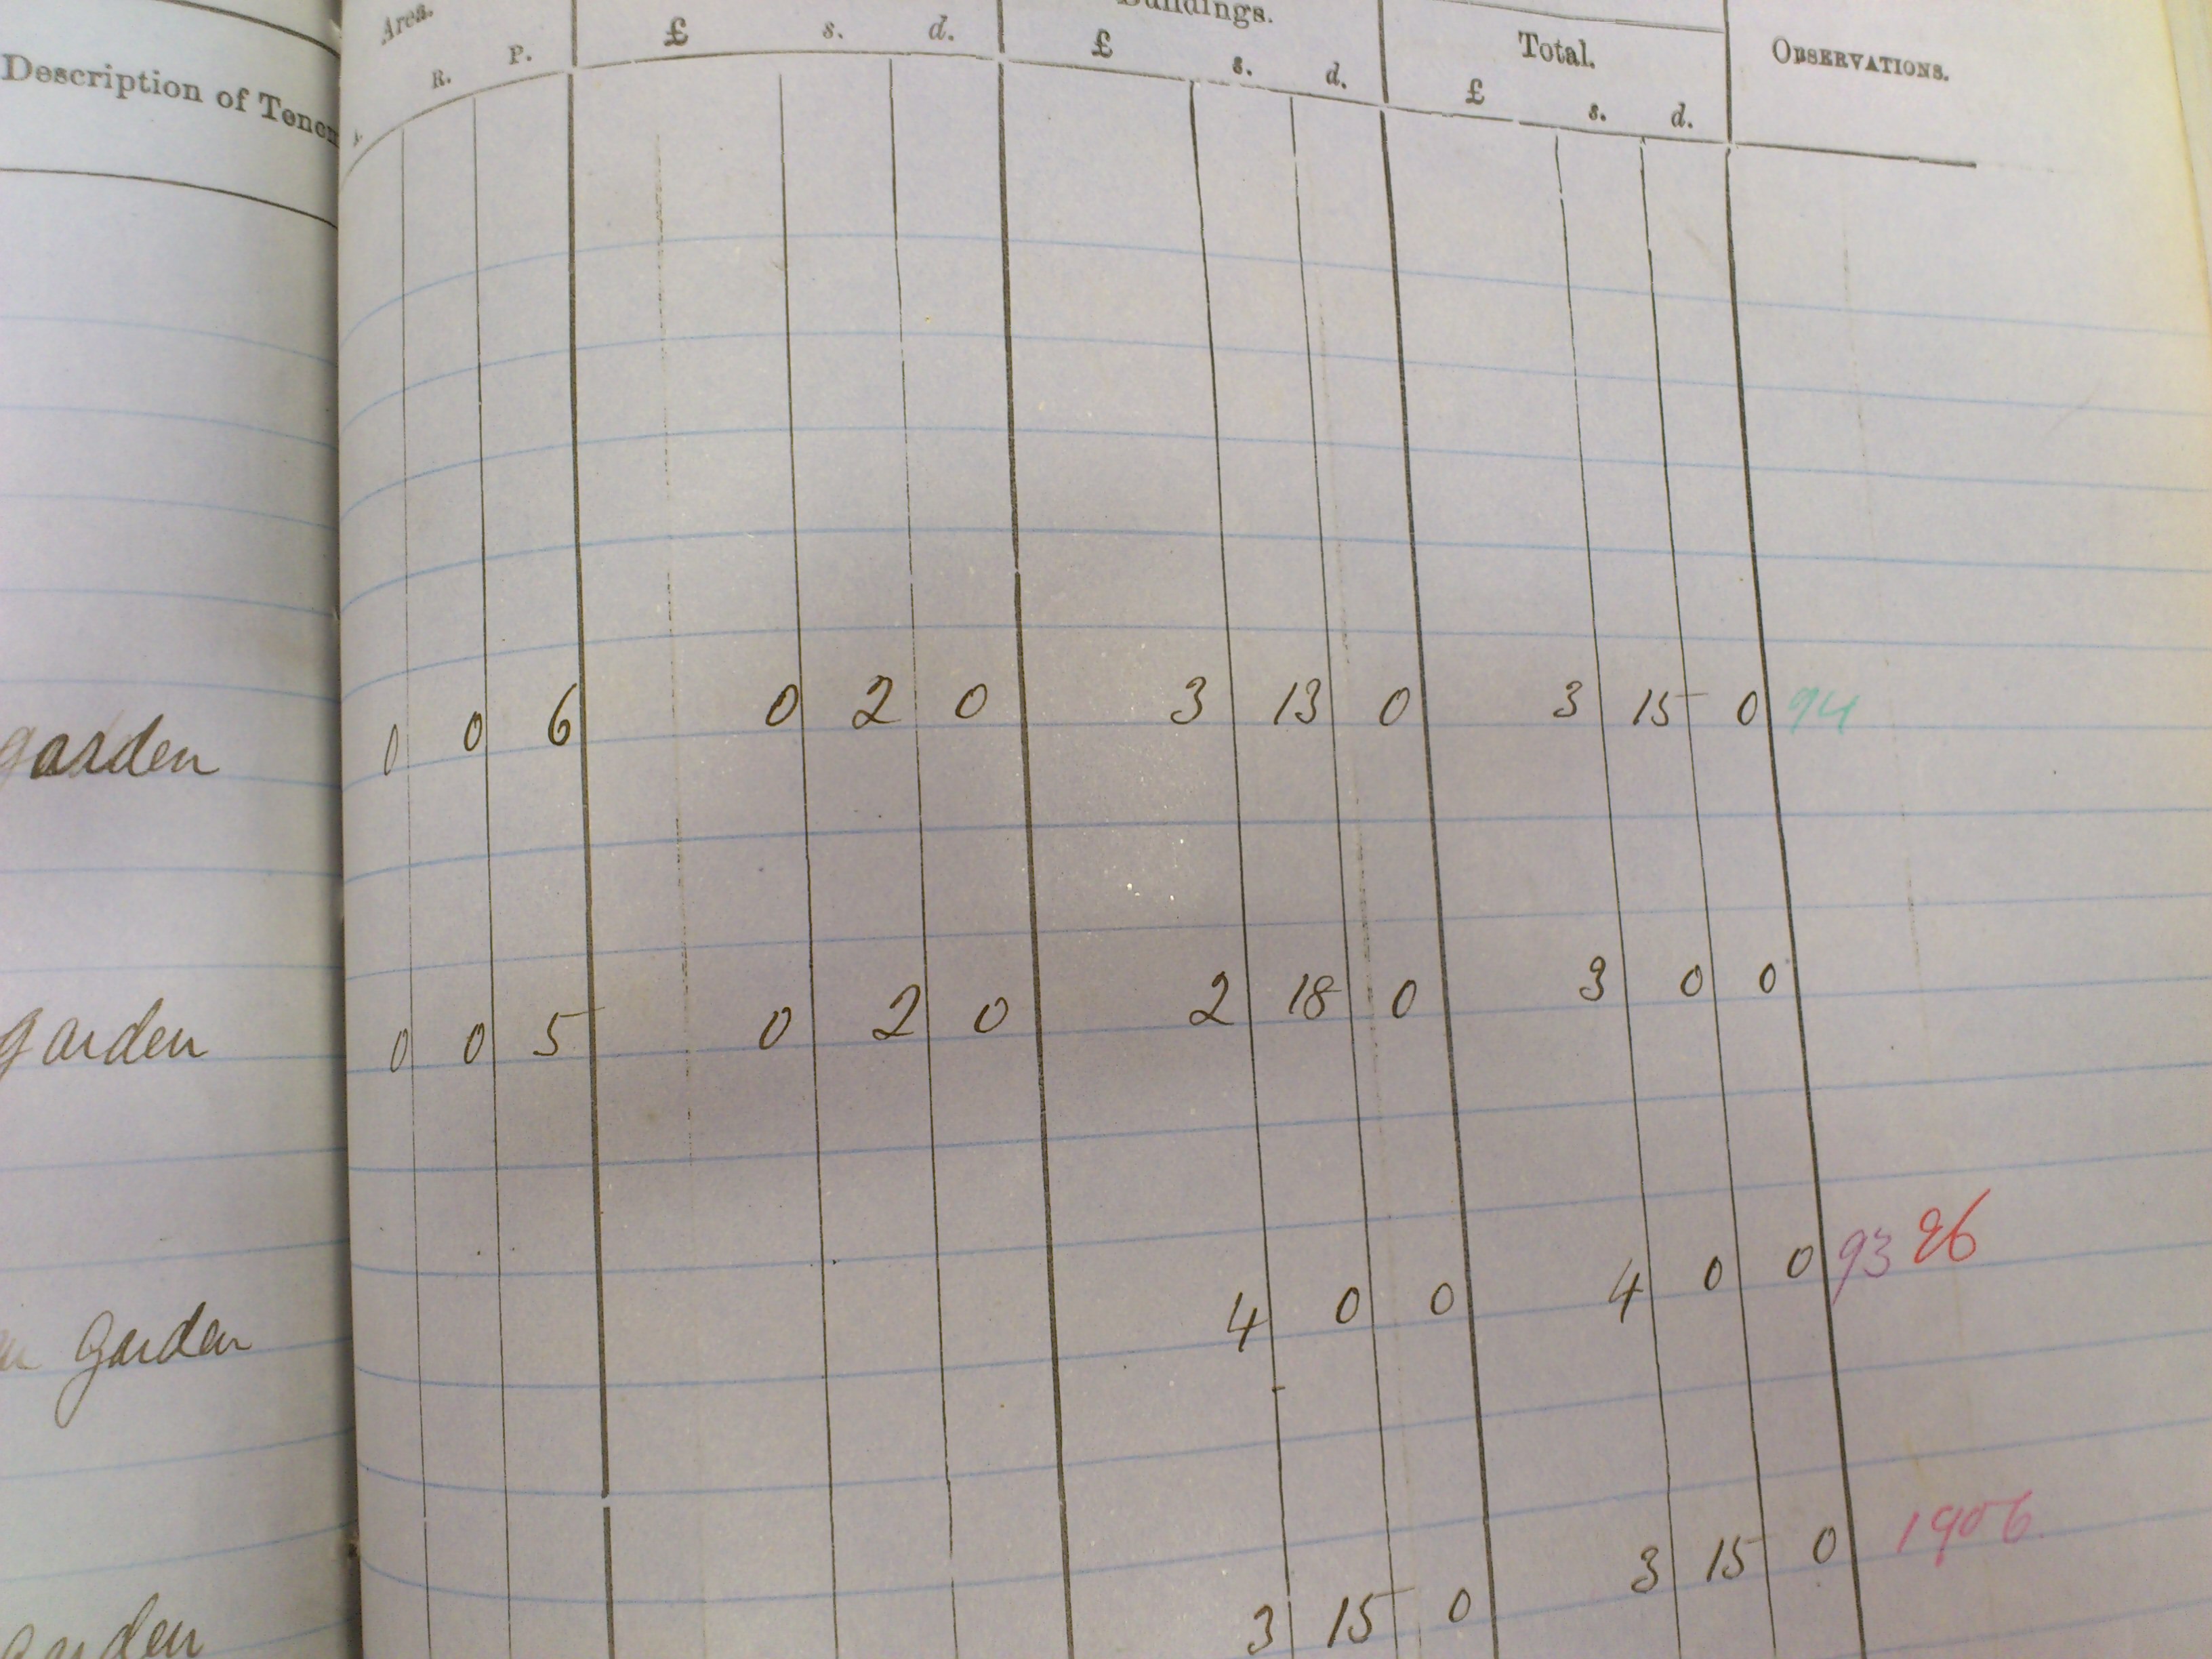 Description of
Area.
R. P.
£ s. d.
Buildings.
£ s. d.
Total.
£ s. d.
OBSERVATIONS.
garden 0 0 6 0 2 0 3 13 0 3 15 0 94
garden 0 0 5 0 2 0 2 18 0 3 0 0
Garden 4 0 0 4 0 0 93 96
garden 3 15 0 3 15 0 1906